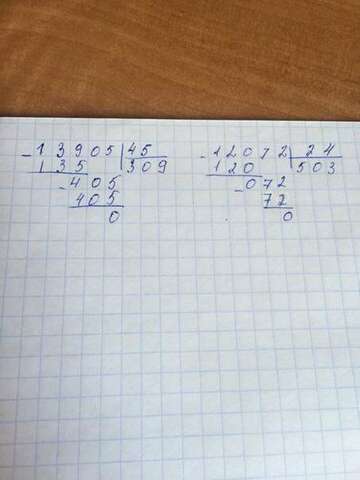 - 13905 | 45
135 | 309
- 405
405
0
- 12072 | 24
120 | 503
- 072
72
0